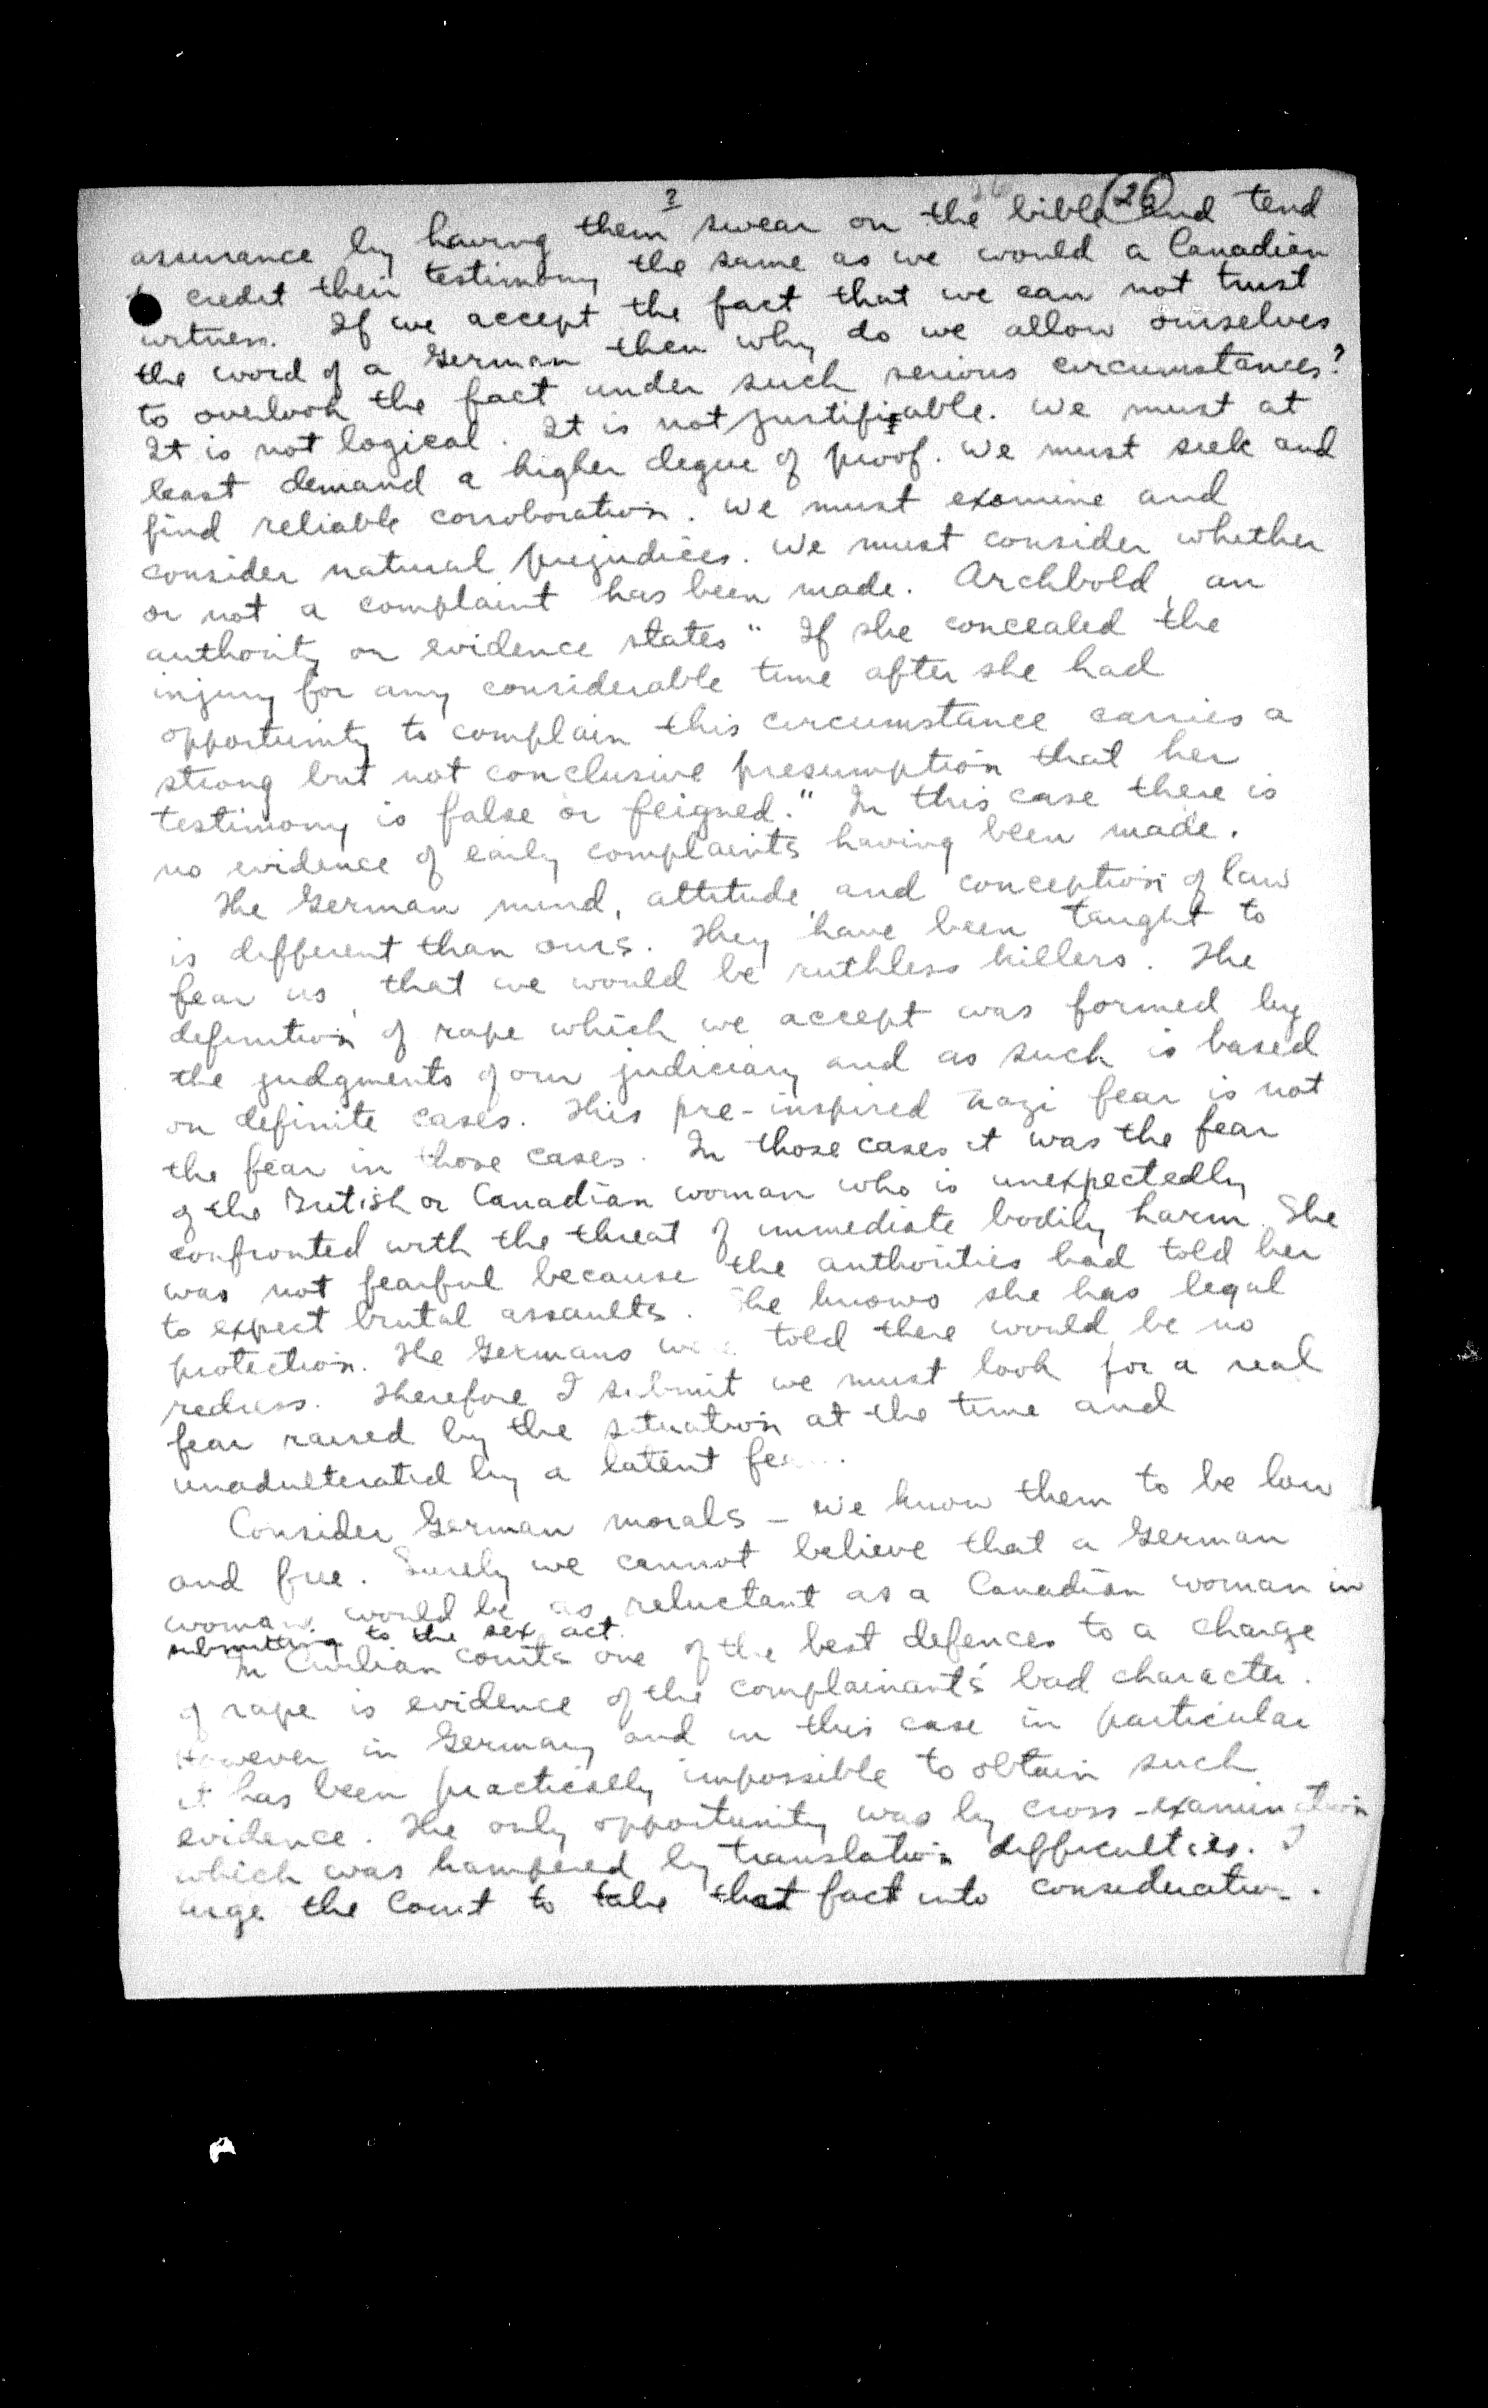 2
26
assurance by having them swear on the bible and tend
credit their testimony the same as we would a Canadian
witness. If we accept the fact that we can not trust
the word of a German then why do we allow ourselves
to overlook the fact under such serious circumstances?
It is not logical. It is not justifiable. We must at
least demand a higher degree of proof. We must seek and
find reliable corroboration. We must examine and
consider natural prejudices. We must consider whether
or not a complaint has been made. Archbold, an
authority on evidence states "If she concealed the
injury for any considerable time after she had
opportunity to complain this circumstance carries a
strong but not conclusive presumption that her
testimony is false or feigned." In this case there is
no evidence of early complaints having been made.
The German mind, attitude, and conception of law
is different than ours. They have been taught to
fear us, that we would be ruthless killers. The
definition of rape which we accept was formed by
the judgments of our judiciary and as such is based
on definite cases. This pre-inspired Nazi fear is not
the fear in those cases. In those cases it was the fear
of the British or Canadian woman who is unexpectedly
confronted with the threat of immediate bodily harm. She
was not fearful because the authorities had told her
to expect brutal assaults. She knows she has legal
protection. The Germans were told there would be no
redress. Therefore I submit we must look for a real
fear raised by the situation at the time and
unadulterated by a latent fear.
Consider German morals - we know them to be low
and free. Surely we cannot believe that a German
woman would be as reluctant as a Canadian woman in
submitting to the sex act.
In Civilian courts one of the best defences to a charge
of rape is evidence of the complainant's bad character.
However in Germany and in this case in particular
it has been practically impossible to obtain such
evidence. The only opportunity was by cross-examination
which was hampered by translation difficulties. I
urge the Court to take that fact into consideration.